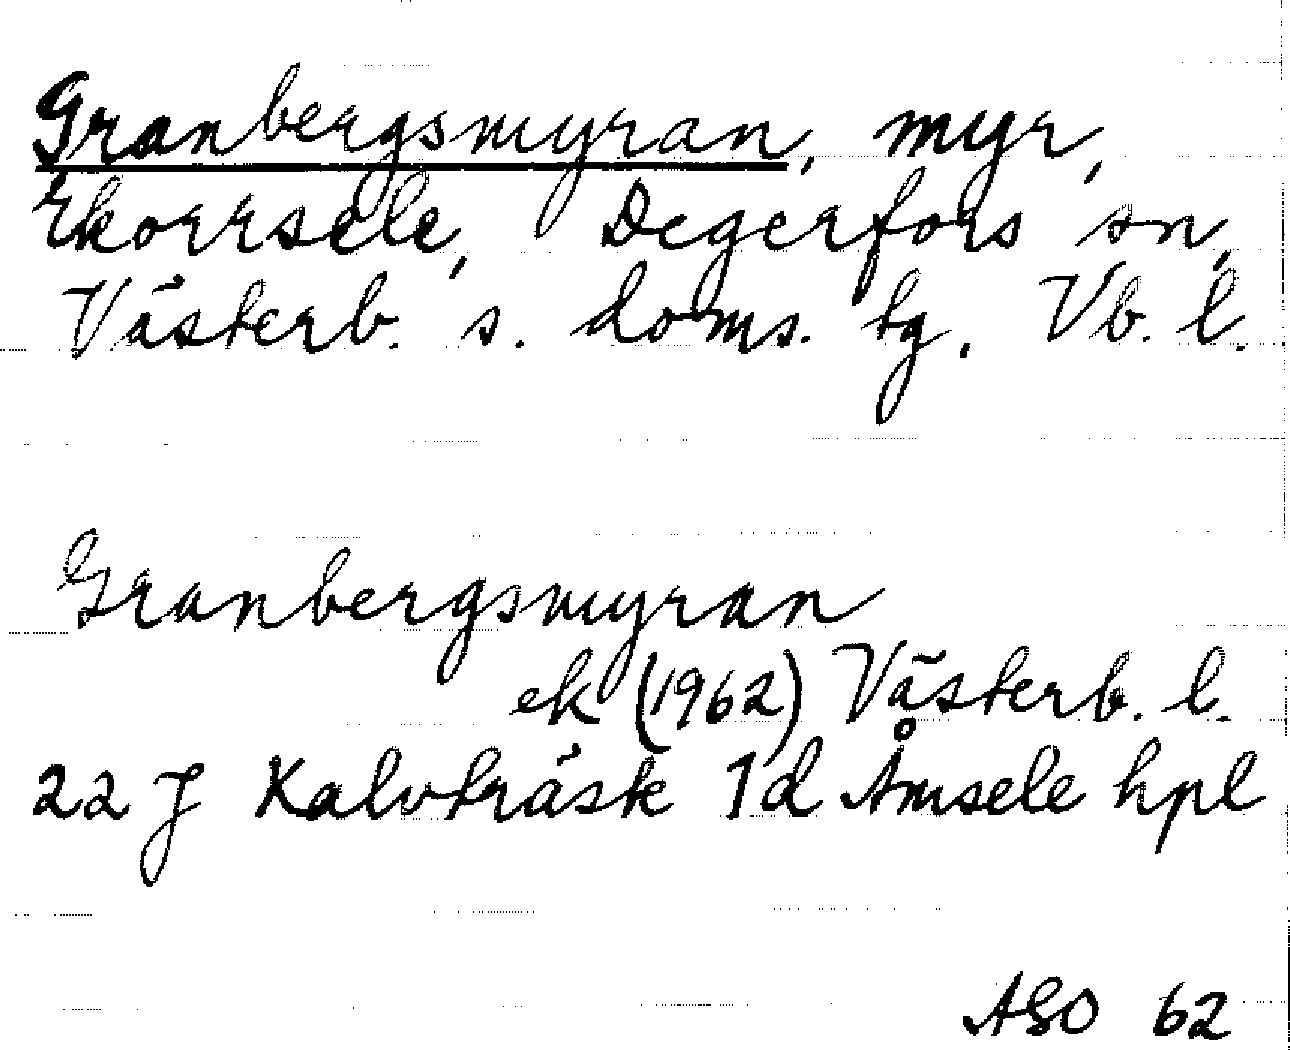 Granbergsmyran, myr,
Ekorrsele, Degerfors sn,
Västerb. s. doms. tg. Vb. l.
Granbergsmyran
ek (1962) Västerb. l.
22 J Kalvträsk 1d Åmsele hpl
ASO 62